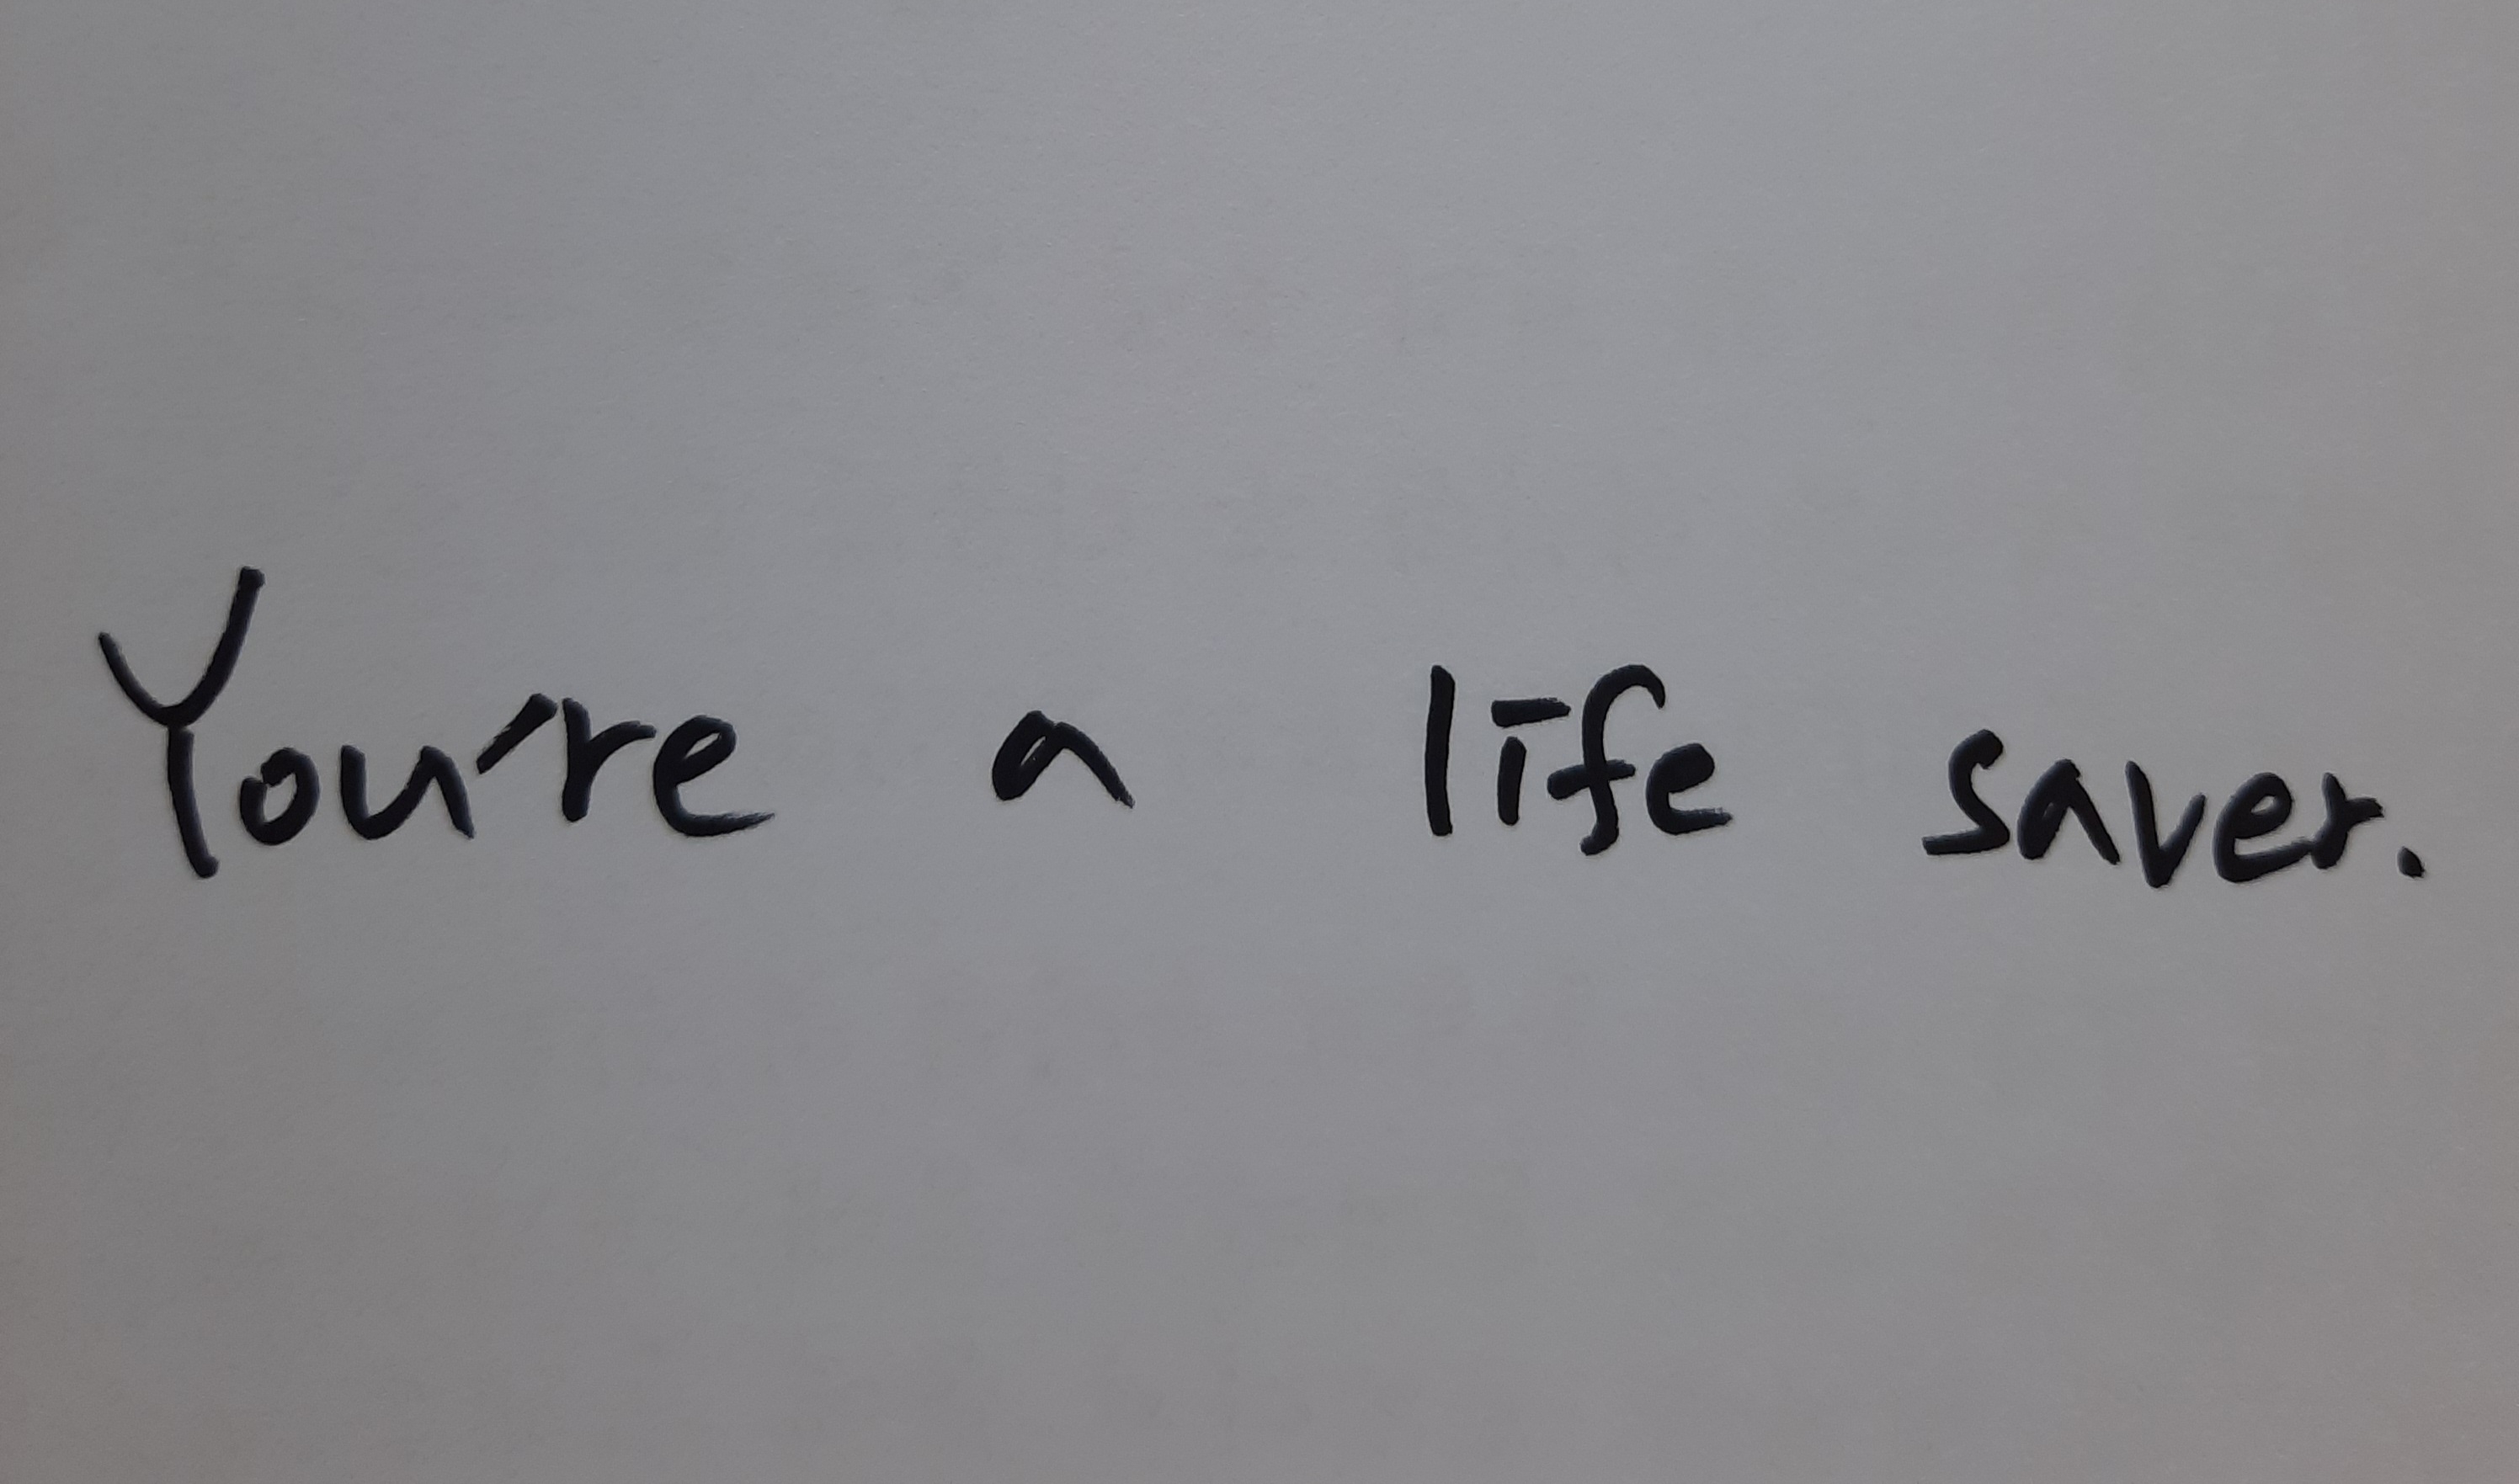 You're a life saver.